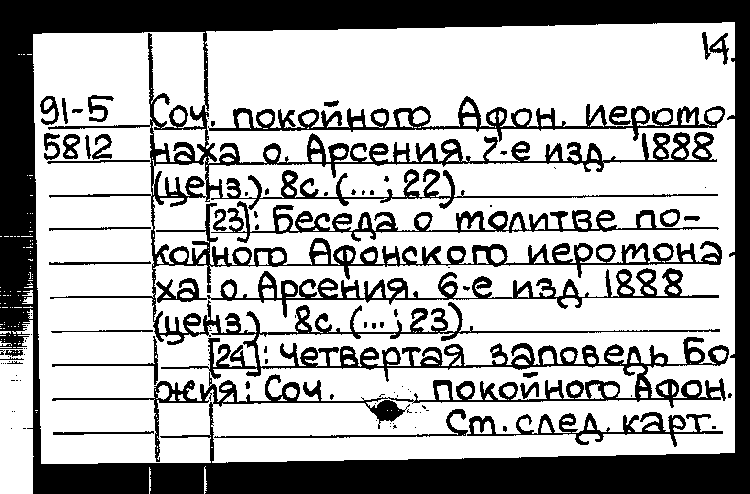 14.
91-5 Соч. покойного Афон. иеромо-
5812 наха о. Арсения. 7-е изд. 1888
(ценз.). 8с. (...; 22).
[23]: Беседа о молитве по-
койного Афонского иеромона-
ха о. Арсения. 6-е изд. 1888
(ценз.) 8с. (...; 23).
[24]: Четвертая заповедь Бо-
жия: Соч. покойного Афон.
См. след. карт.